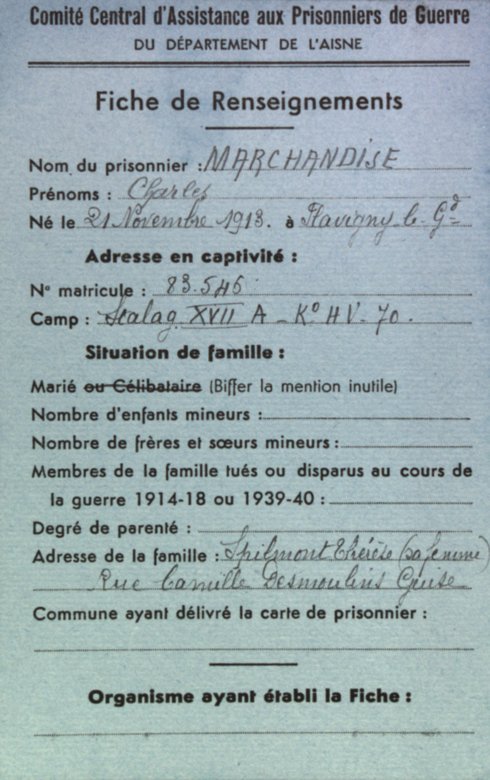 Comité Central d'Assistance aux Prisonniers de Guerre
DU DÉPARTEMENT DE L'AISNE
Fiche de Renseignements
Nom du prisonnier : MARCHANDISE
Prénoms : Charles
Né le 21 Novembre 1913. à Flavigny-le-Gd
Adresse en captivité :
No matricule : 83.545
Camp : Stalag XVII A - Ko HV-70.
Situation de famille :
Marié ou Célibataire (Biffer la mention inutile)
Nombre d'enfants mineurs :
Nombre de frères et sœurs mineurs :
Membres de la famille tués ou disparus au cours de
la guerre 1914-18 ou 1939-40 :
Degré de parenté :
Adresse de la famille : Spilmont Thérèse (sa femme)
Rue Camille Desmoulins Guise
Commune ayant délivré la carte de prisonnier :
Organisme ayant établi la Fiche :